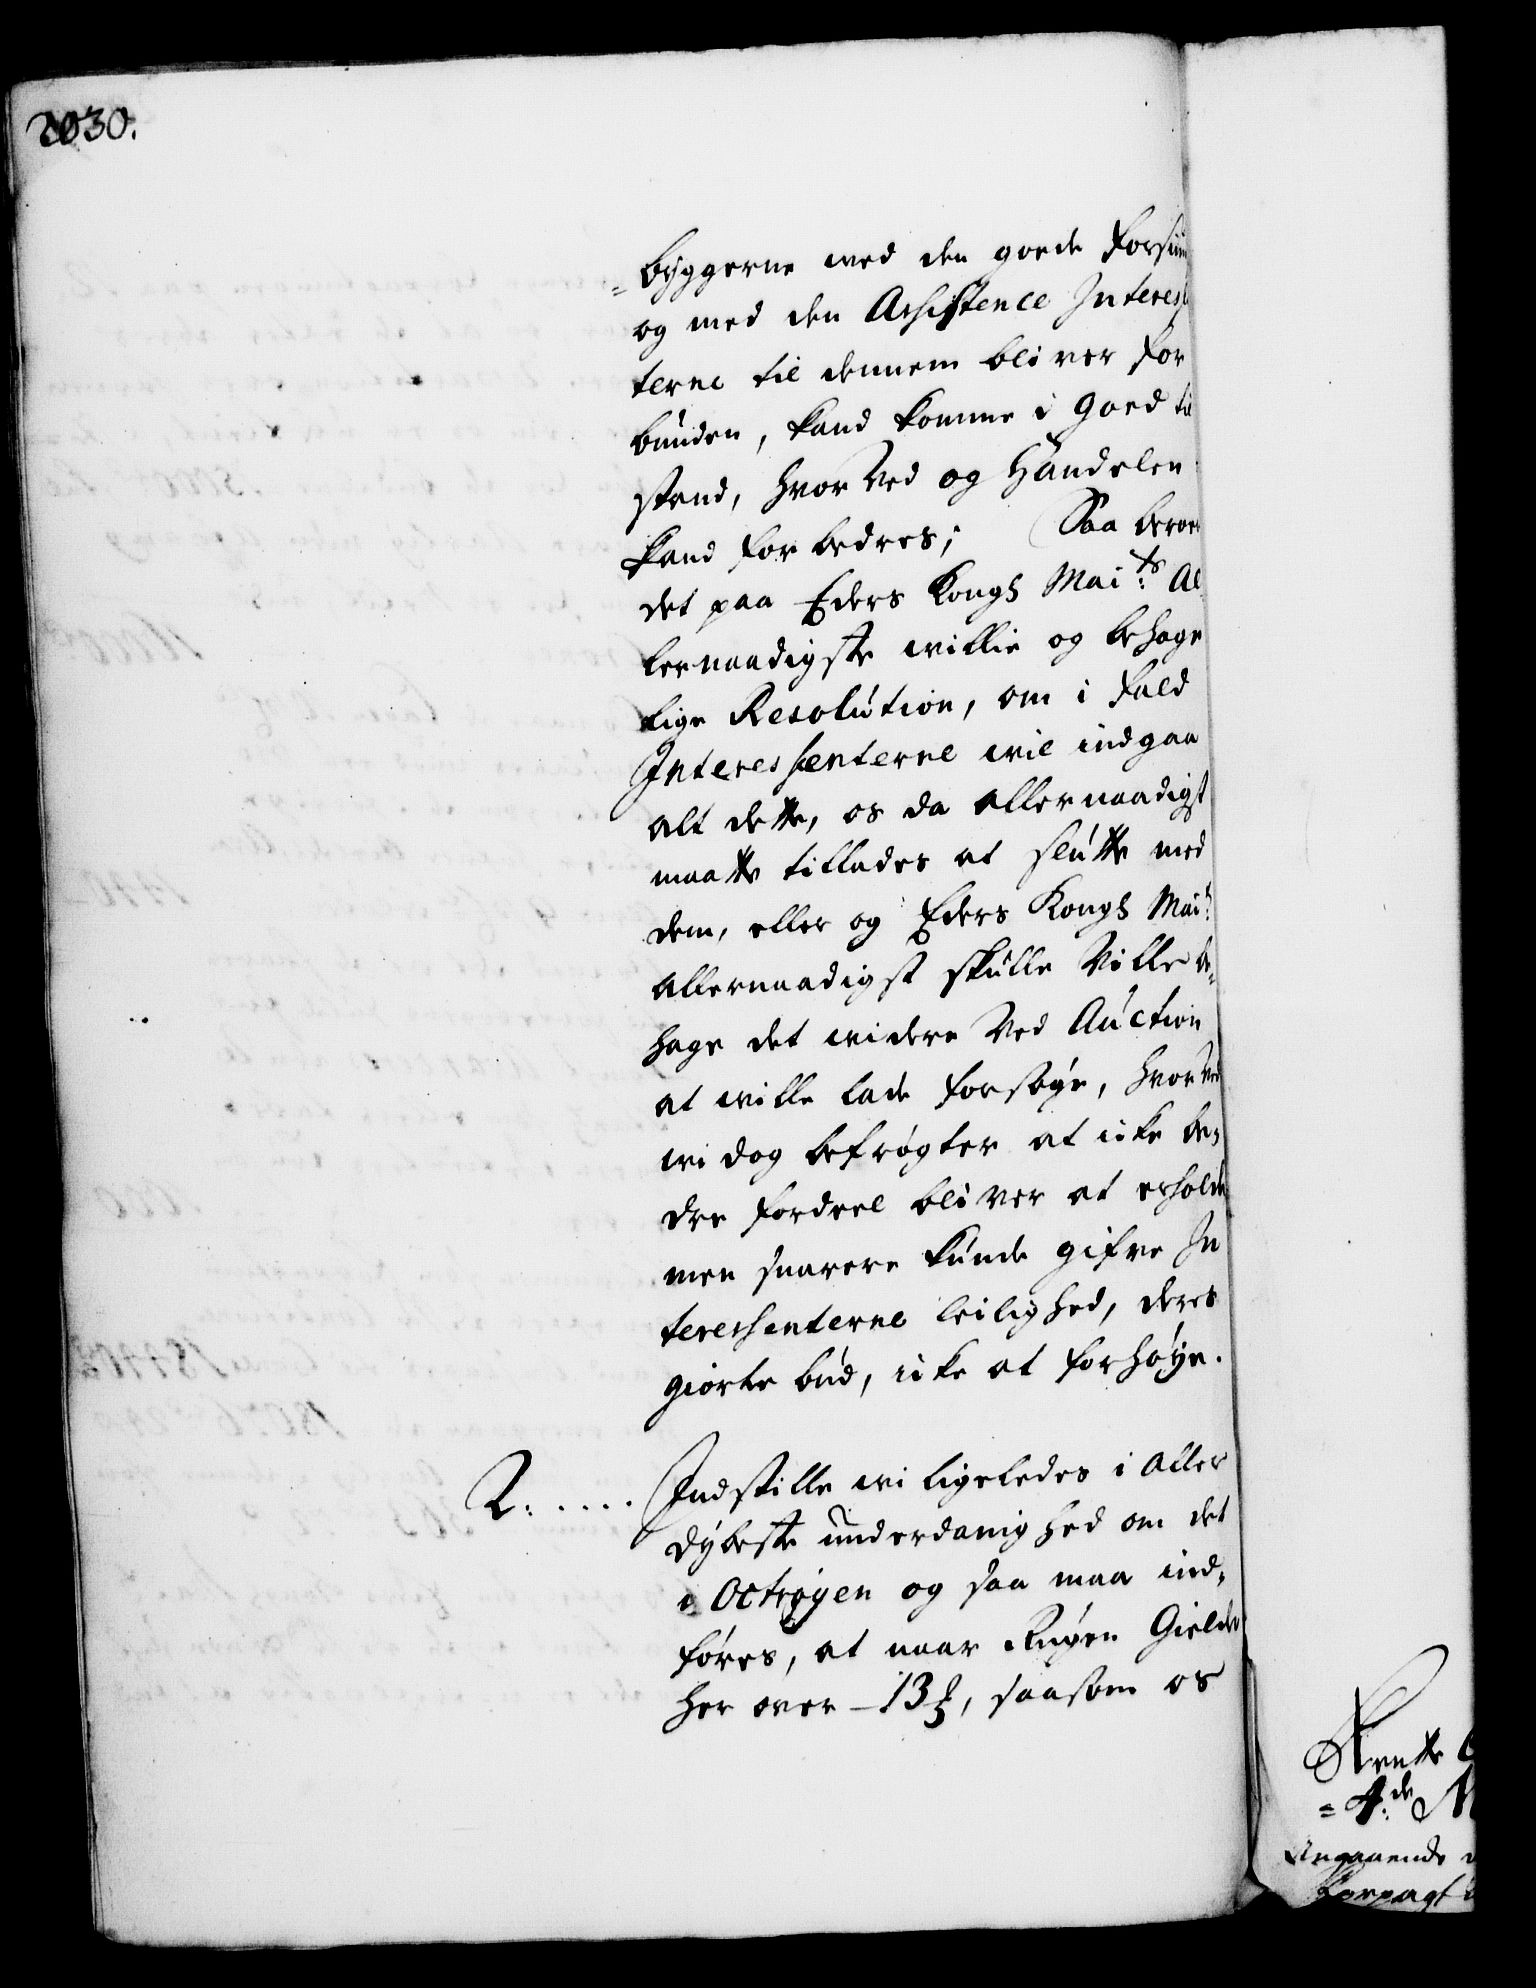 2030.
= byggerne med den goede forsiun
og med den Assistence Interes
terne til dennem bliver for
bunden, kand komme i goed til
stand, hvor ved og Handelen
kand forbedres; Saa beroer
det paa Eders Kongl Mai:ts Al
lernaadigste willie og behage
lige Resolution, om i fald
Interessenterne wil indgaa
alt dette, os da allernaadigst
maatte tillades at slutte med
dem, eller og Eders Kongl Mai:t
allernaadigst skulle Ville be„
hage det widere ved Auction
at wille lade forsøge, hvor ved
wi dog befrøgter at icke be„
dre fordeel bliver at erholde
men snarere kunde gifve In
teressenterne leilighed, deres
giorte bud, icke at forhøye.
2: .... Indstille wi ligeledes i aller
dybeste underdanighed om det
i Octroyen og saa maa ind„
føres, at naar Rugen Gielder
her over - 13 ß, saasom os
Skrefte
= 4:de M
Angaaende
forpagt